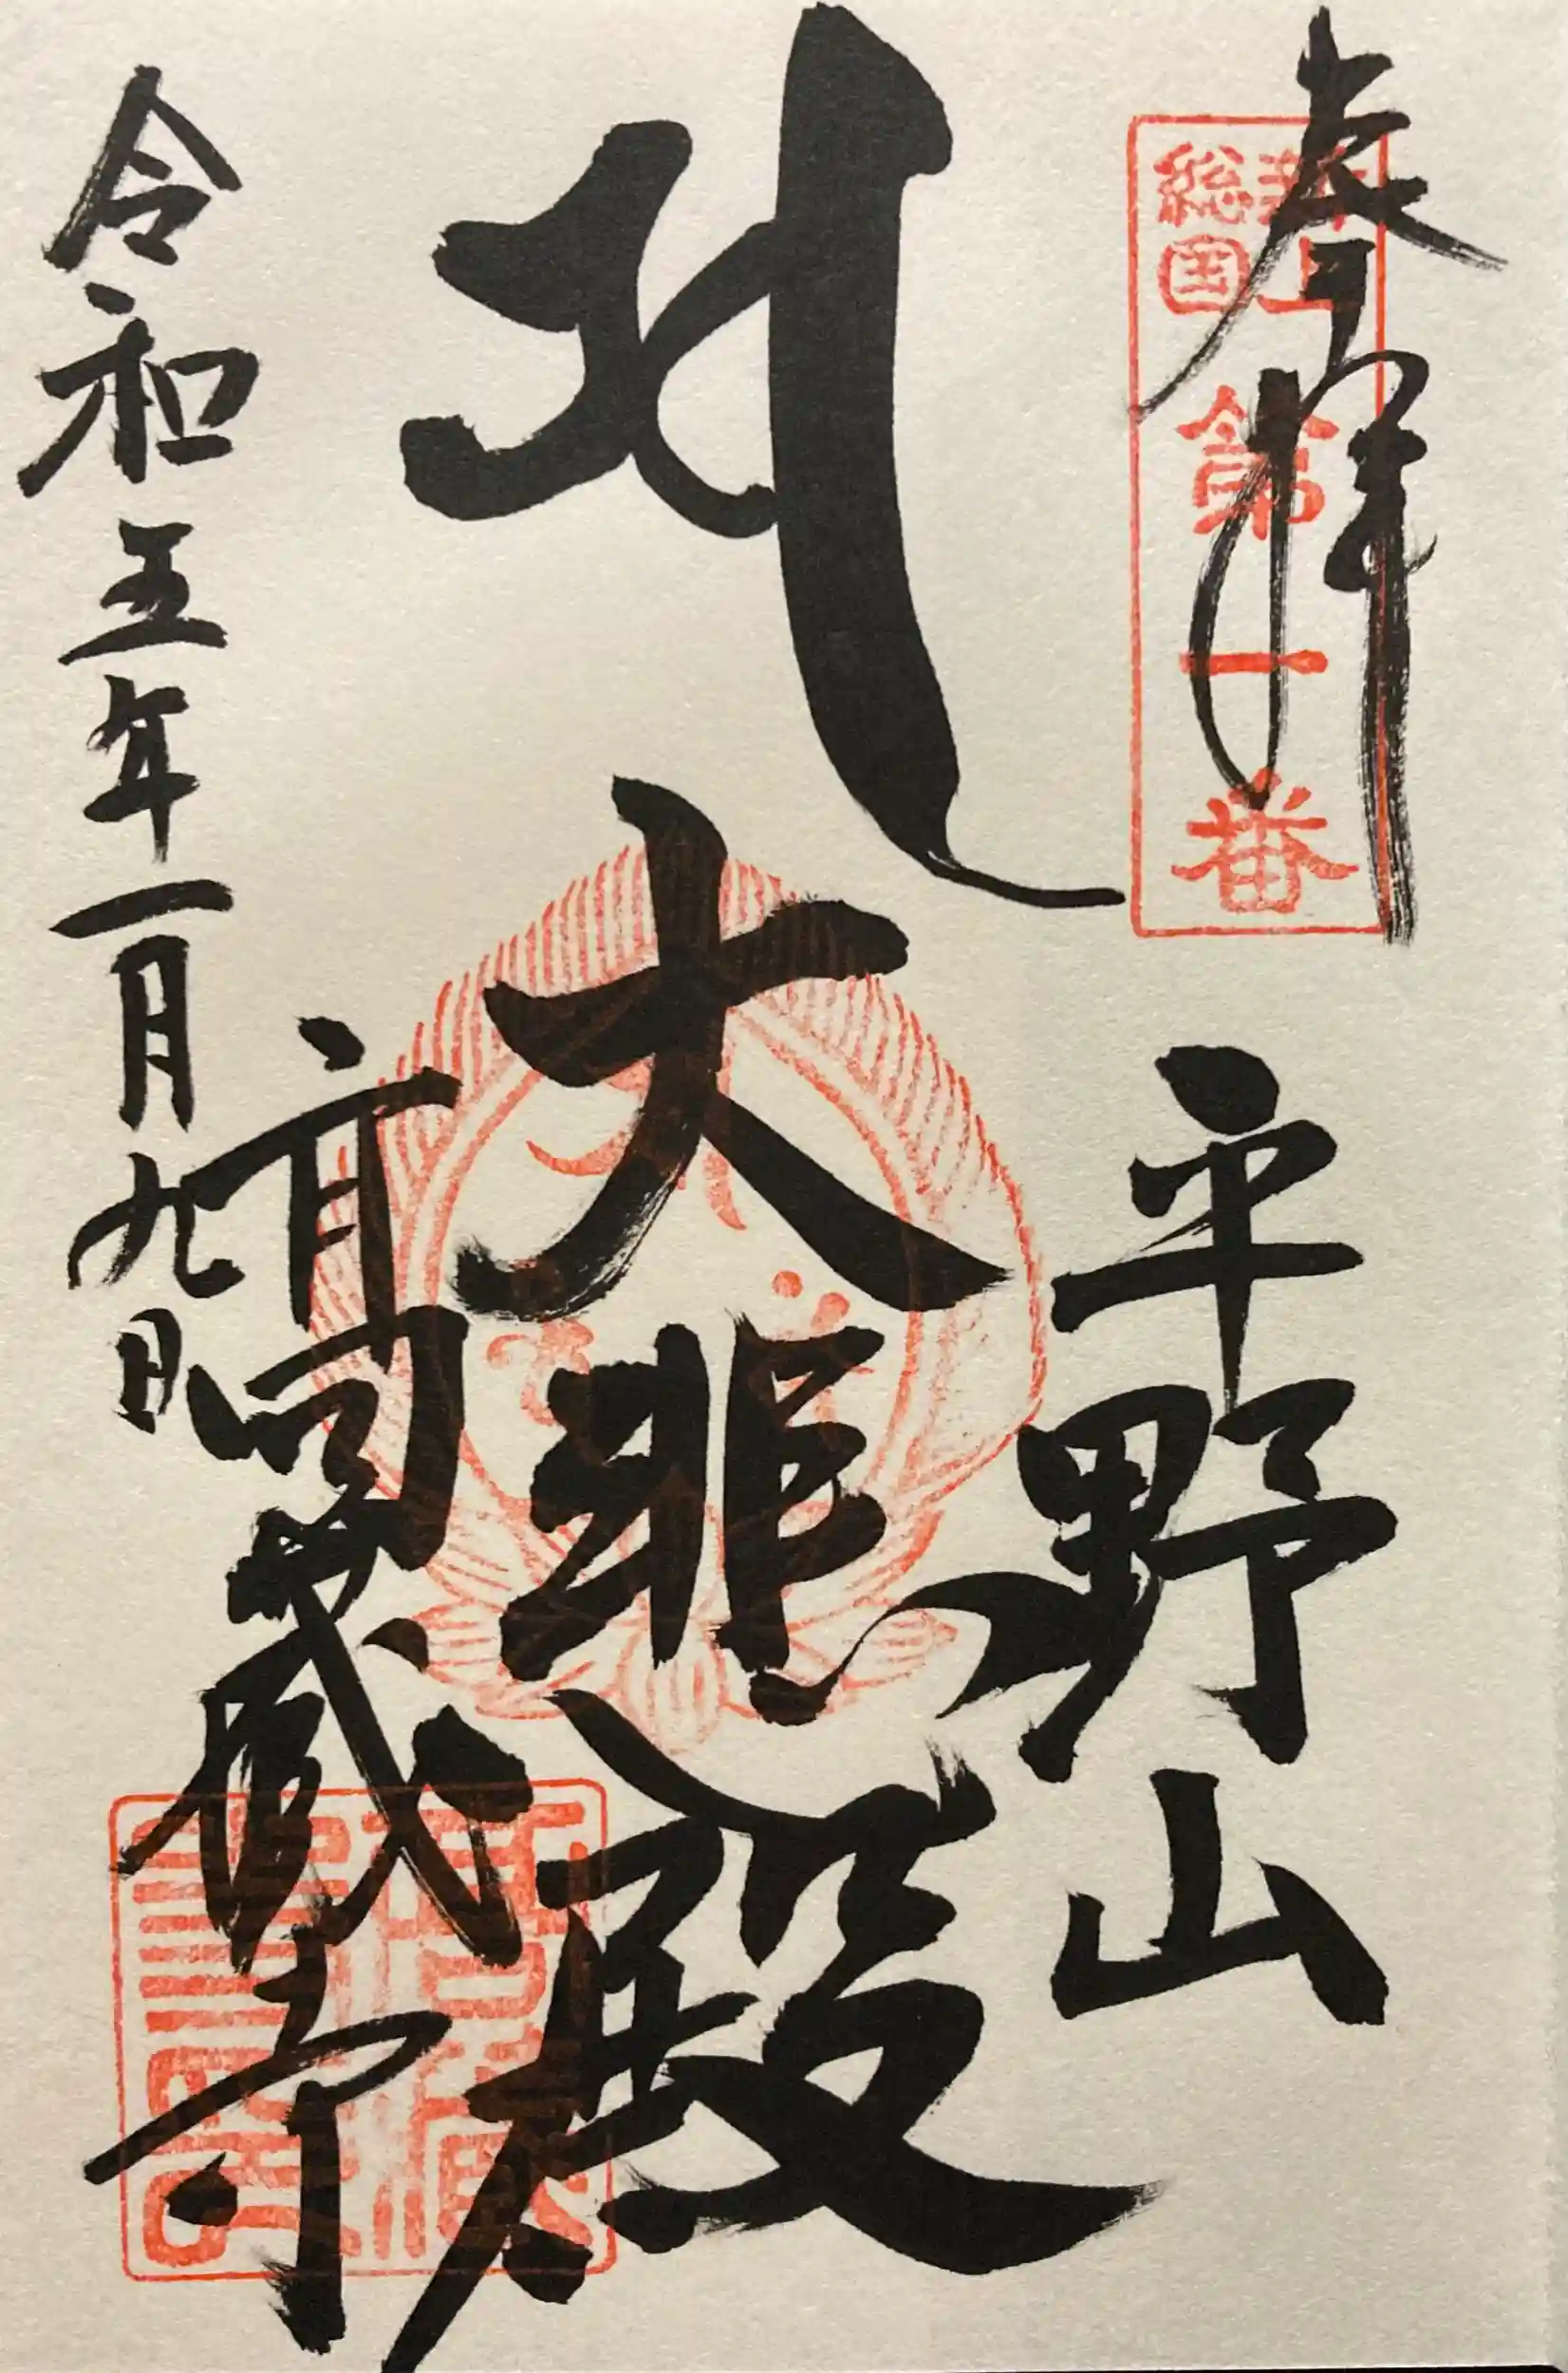 奉拝
新上
総国
第一番
平野山
大悲殿
髙蔵寺
令和五年一月九日